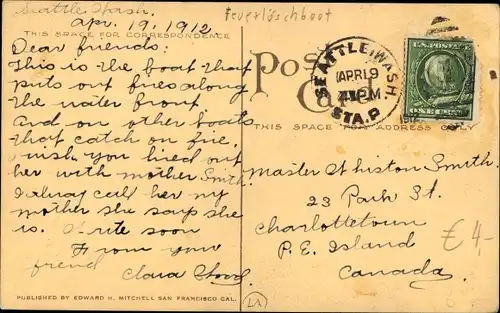 Seattle Wash.
Apr. 19, 1912
Feuerlöschboot
THIS SPACE FOR CORRESPONDENCE
Dear friends:
This is the boat that
puts out fires along
the water front
and on other boats
that catch on fire.
I wish you lived out
her with mother Smith.
I alway call her my
mother she says she
is. Write soon
From your
friend
Clara
PUBLISHED BY EDWARD H. MITCHELL SAN FRANCISCO CAL.
Post
Card
THIS SPACE FOR ADDRESS ONLY
SEATTLE, WASH.
APR 19
PM
STA. P
U.S. POSTAGE
ONE CENT
Master Whiston Smith.
23 Park St.
Charlottetown
P. E. Island
Canada
€ 4,-
LA